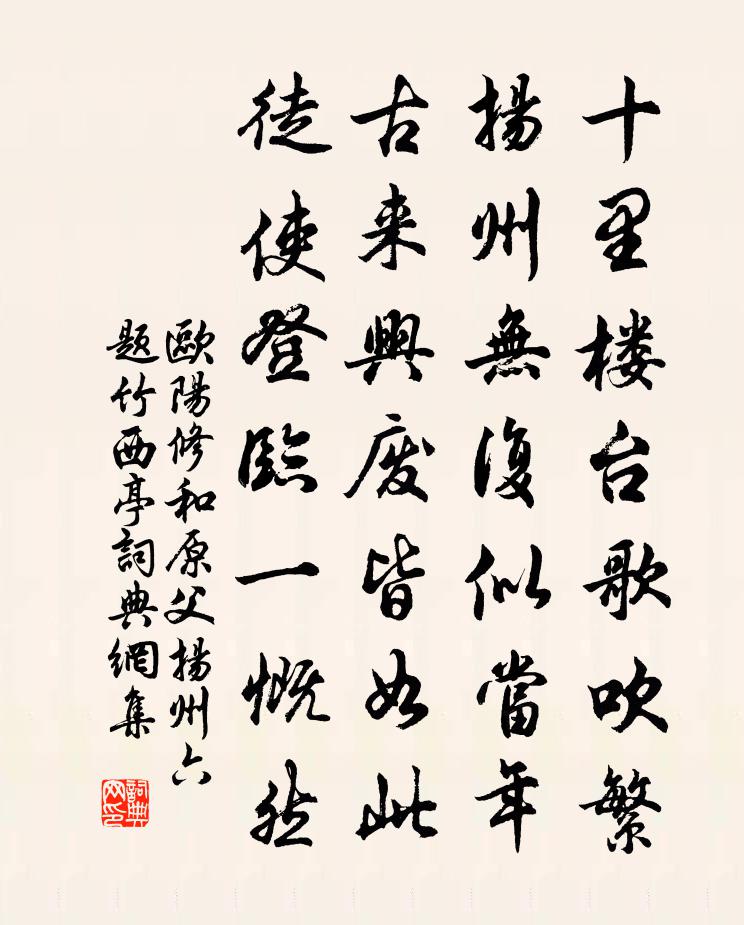 十里楼台歌吹繁
揚州無復似當年
古来興廢皆如此
徒使登臨一慨然
歐陽修和原父揚州六
題竹西亭詞典網集
詞典网印